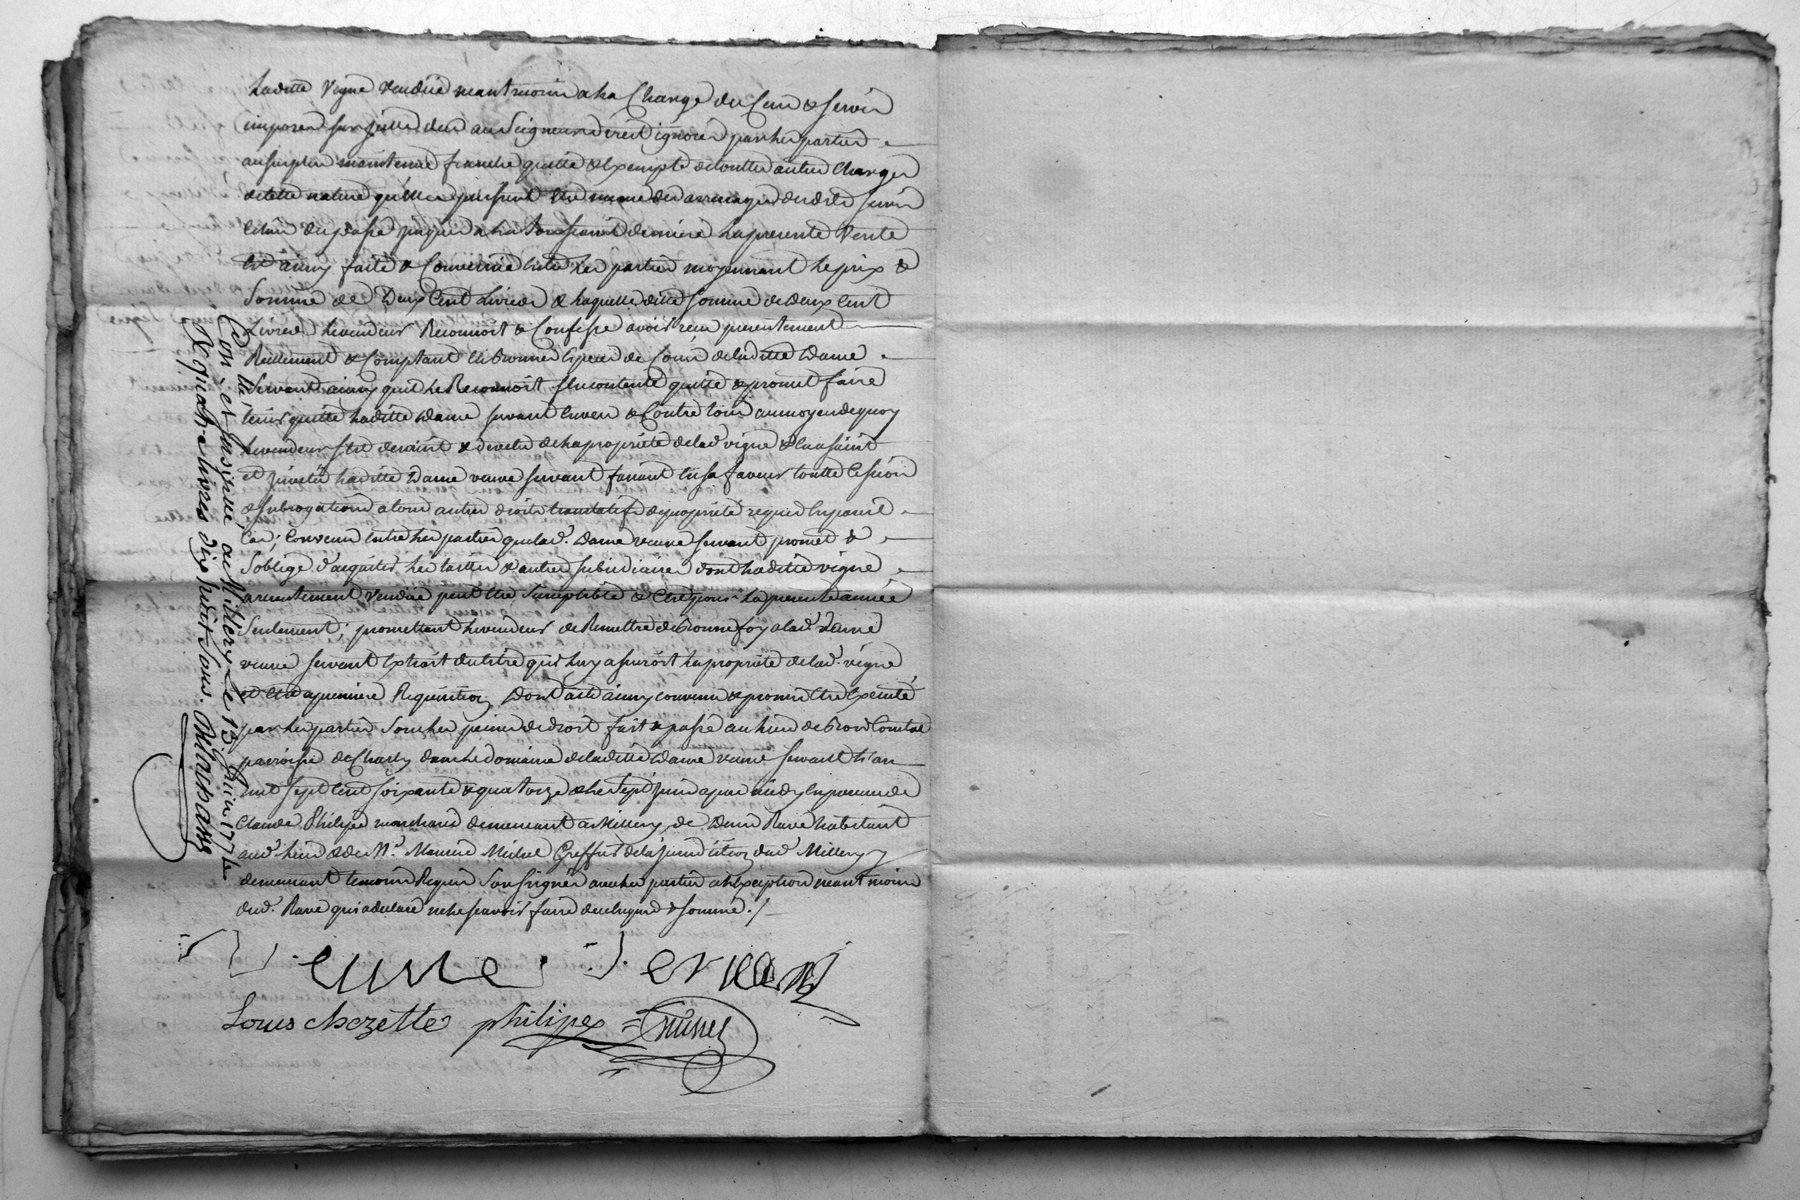 Laditte vigne vendüe neantmoin a la Charge du Cens & servis
imposés sur jcelle deu au Seigneur direct ignoré par les parties
au surplus maintenüe franche quitte & Exempte de touttes autres Charges
de telle nature qu'elles puissent être meme des arrerages desdits servis
du passé jusqu'a la Toussaint derniere la presente Vente
Est ainsy faite & Convenüe Entre les parties moyennant le prix &
Somme de Deux Cent Livres & laquelle ditte somme de deux Cent
Livres le vendeur Reconnoit & Confesse avoir reçu presentement
Reellement & Comptant En bonnes Especes de Cours de laditte Dame
Servant ainsy qu'il le Reconnoit s'en contente quitte & promet faire
tenir quitte laditte Dame servant Envers & Contre tous au moyen de quoy
le vendeur s'est demis & devetu de la propriété de lad. vigne & En a saisit
et jnvetü laditte Dame veuve servant faisant En sa faveur toutte Cession
& subrogations a tous autres droits translatifs de propriété requis En pareil
Cas; Convenu Entre les parties que lad. Dame veuve servant promet &
s'oblige d'acquiter les tailles & autres subsidiaires dont laditte vigne
presentement vendüe peut être susceptible & Ce pour la presente année
Seulement; promettant le vendeur de Remettre de bonne foy a lad. Dame
veuve servant Extrait du titre qui luy assuroit la propriété de lad. vigne
et Ce a sa premiere Requisition Dont acte ainsy convenu & promis être Executé
par les parties sous les peines de droit fait & passé au lieu de
parroisse de Charly dans le domaine de laditte Dame veuve servant L'an
mil sept Cent soixante & quatorze & le sept juin apres midy En presence de
Claude Philipe marchand demeurant a Millery, de Denis Ravé habitant
aud. lieu & de Me. Michel Greffier de la jurisdiction dud. Millery y
demeurant temoins Requis Soussignés avec les parties a l'Exception neantmoins
dud. Ravé qui a declaré ne le sçavoir faire de ce Enquis & sommé./.
veuve servant
Louis chozette philipe
Con.lé et Insinué au Millery Le 13 Juin 1774
R quatre livres dix huit sous.